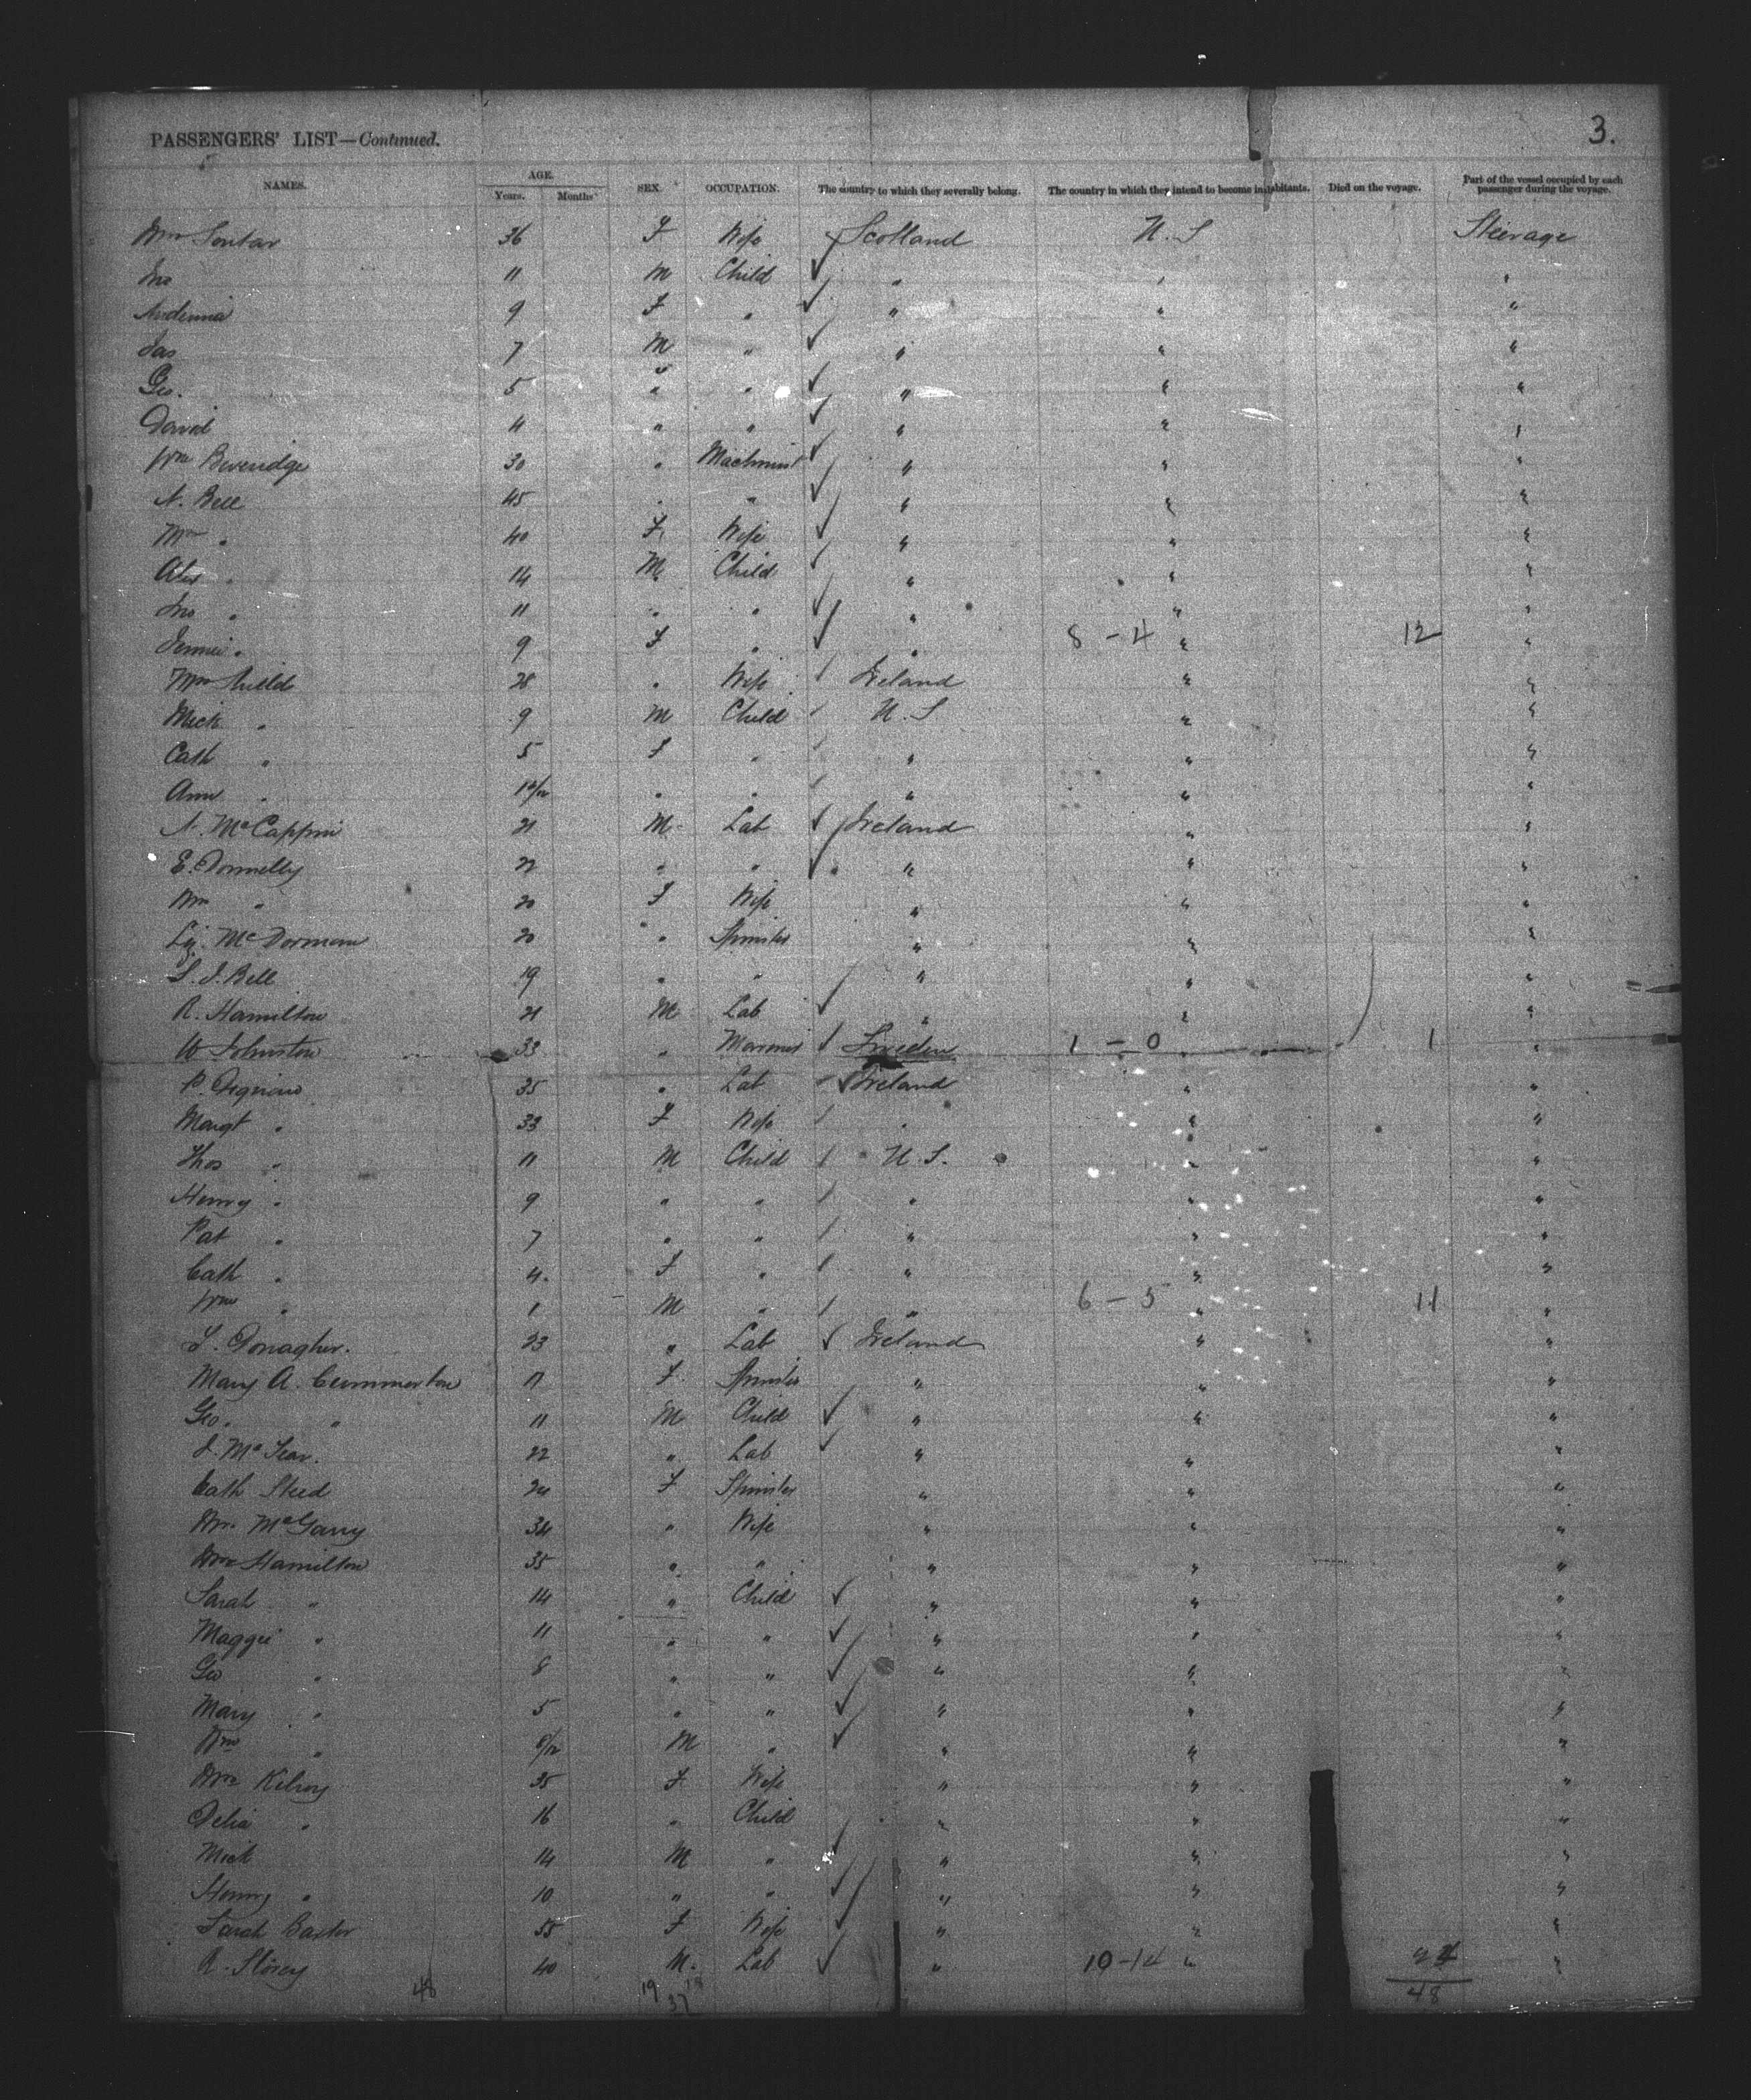 3.
PASSENGERS' LIST—Continued.
NAMES. AGE. Years. Months SEX. OCCUPATION. The country to which they severally belong. The country in which they intend to become inhabitants. Died on the voyage. Part of the vessel occupied by each passenger during the voyage.
Soutar 36 F Wife Scotland U.S Steerage
Jno 11 M Child " " "
9 F " " " "
Jas 7 M " " " "
Geo. 5 " " " " "
David 4 " " " " "
Wm Beveridge 30 " Machinist " " "
A. Bell 45 " " " " "
Mrs " 40 F Wife " " "
Alex " 14 M Child " " "
Jno " 11 " " " " "
Jennie " 9 F " " 8 - 4 " 12 "
Mrs Shields 28 " Wife Ireland " "
Mick " 9 M Child U.S " "
Cath " 5 F " " " "
Ann " " " " " "
A. McCappin 21 M Lab Ireland " "
E. Donnelly 22 " " " " "
Mrs " 20 F Wife " " "
Liz. McDorman 20 " Spinster " " "
S. J. Bell 19 " " " " "
R. Hamilton 21 M Lab " " "
W Johnston 33 " Mariner Sweden 1 - 0 " 1 "
P. Dignan 35 " Lab Ireland " "
Margt " 33 F Wife " " "
Thos " 11 M Child U.S. " "
Henry " 9 " " " " "
Pat " 7 " " " " "
Cath " 4 F " " " "
Wm " 1 M " " 6 - 5 " 11 "
Donagher. 23 " Lab Ireland " "
Mary A. Cummerton 17 F Spinster " " "
Geo. " 11 M Child " " "
J. McFear. 22 " Lab " " "
Cath Steed 24 F Spinster " " "
Mrs. McGarry 34 " Wife " " "
Mrs Hamilton 35 " " " " "
Sarah " 14 " Child " " "
Maggie " 11 " " " " "
Geo " 8 " " " " "
Mary " 5 " " " " "
Wm " M " " " "
Mrs Kilroy 35 F Wife " " "
Delia " 16 " Child " " "
Mick 14 M " " " "
Henry " 10 " " " " "
Sarah Baxter 55 F Wife " " "
R. Storey 40 M. Lab " 10-14 " 24 "
48 19 18 37 48